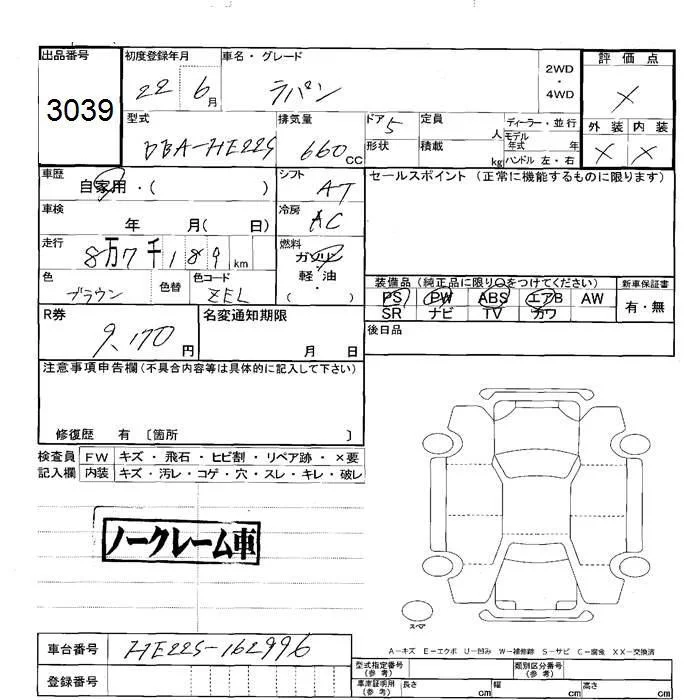 出品番号 初度登録年月 車名・グレード 評価点
3039 22 6月 ラパン 2WD・4WD ×
型式 排気量 ドア 定員 ディーラー・並行 外装 内装
DBA-HE22S 660cc 5 人 モデル年式 年 × ×
形状 積載 kg ハンドル 左・右
車歴 シフト セールスポイント (正常に機能するものに限ります)
自家用・( ) AT
車検 冷房
年 月( 日) AC
走行 燃料
8万7千189km ガソリン
軽油・( )
色 色替 色コード 装備品 (純正品に限り○をつけてください) 新車保証書
ブラウン ZEL PS PW ABS エアB AW 有・無
SR ナビ TV カワ
R券 名変通知期限 後日品
9,170円 月 日
注意事項申告欄(不具合内容等は具体的に記入して下さい)
修復歴 有 〔箇所 〕
検査員 FW キズ・飛石・ヒビ割・リペア跡・×要
記入欄 内装 キズ・汚レ・コゲ・穴・スレ・キレ・破レ
ノークレーム車
スペア
A-キズ E-エクボ U-凹み W-補修跡 S-サビ C-腐食 XX-交換済
車台番号 HE22S-162996
登録番号
型式指定番号(参考) 類別区分番号(参考)
車庫証明用(参考) 長さ cm 幅 cm 高さ cm